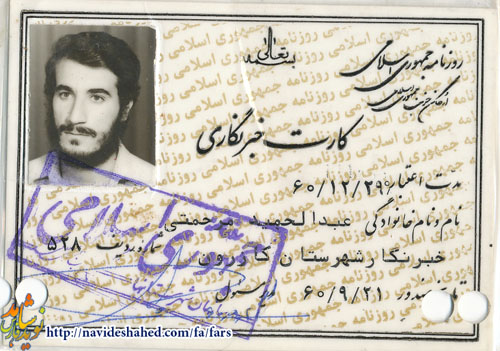 بسمه تعالی
روزنامه جمهوری اسلامی
ارگان حزب جمهوری اسلامی
کارت خبرنگاری
مدت اعتبار ۶۰/۱۲/۲۹
نام و نام خانوادگی عبدالحمید مرحمتی شماره ردیف ۵۲۸
خبرنگار شهرستان کازرون
تاریخ صدور ۶۰/۹/۲۱ امور مسئول
نوید شاهد
http://navideshahed.com/fa/fars